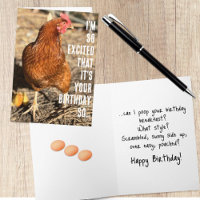 I'M
SO
EXCITED
THAT
IT'S
YOUR
BIRTHDAY,
SO...
...can I poop your birthday
breakfast?
What style?
Scrambled, sunny side up,
over easy, poached?
Happy Birthday!